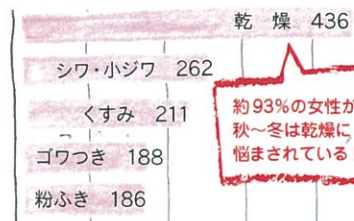 乾 燥 436
シワ・小ジワ 262
くすみ 211
ゴワつき 188
粉ふき 186
約93%の女性が
秋~冬は乾燥に
悩まされている